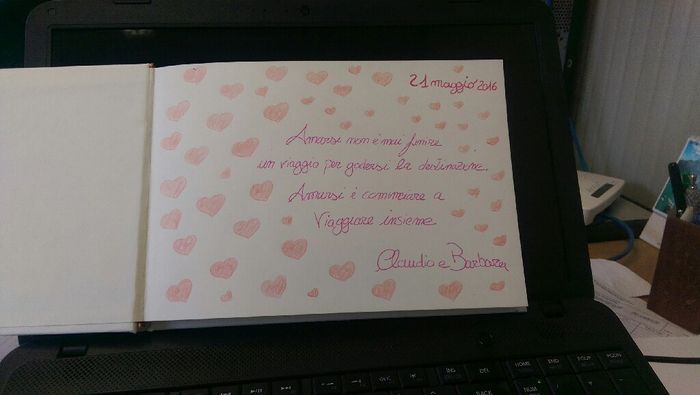 21 maggio 2016
Amarsi non è mai finire
un viaggio per godersi la destinazione.
Amarsi è cominciare a
Viaggiare insieme
Claudio e Barbara
INS
DEL
HOME
END
PGUP
PGDN
BACK
NUM